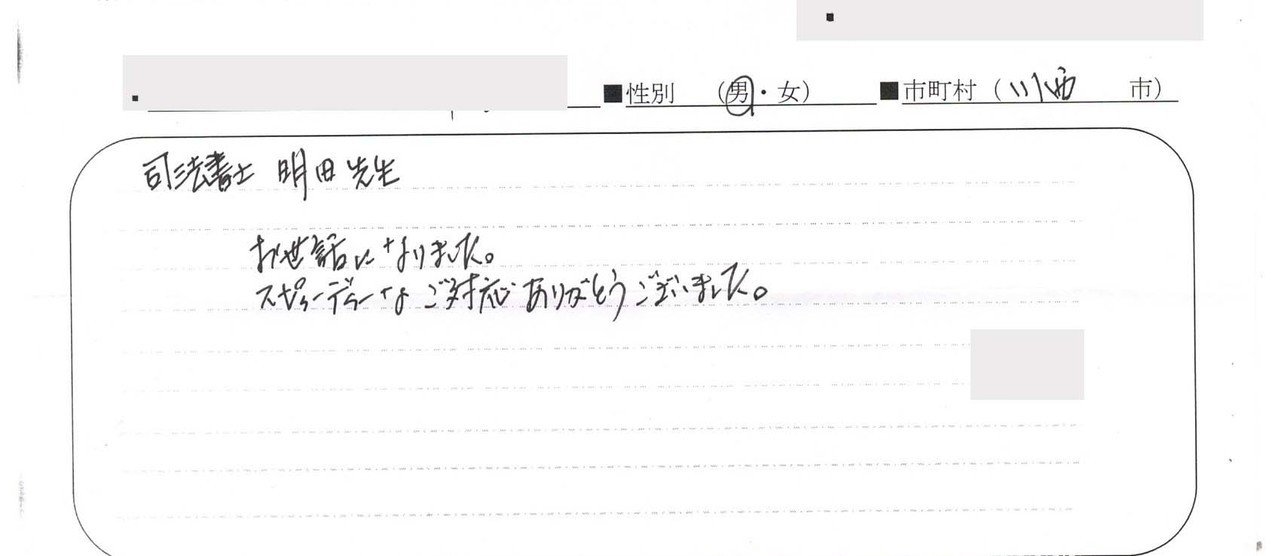 ■性別 （男・女） ■市町村（川西 市）
司法書士 明田 先生
お世話になりました。
スピーディーなご対応ありがとうございました。